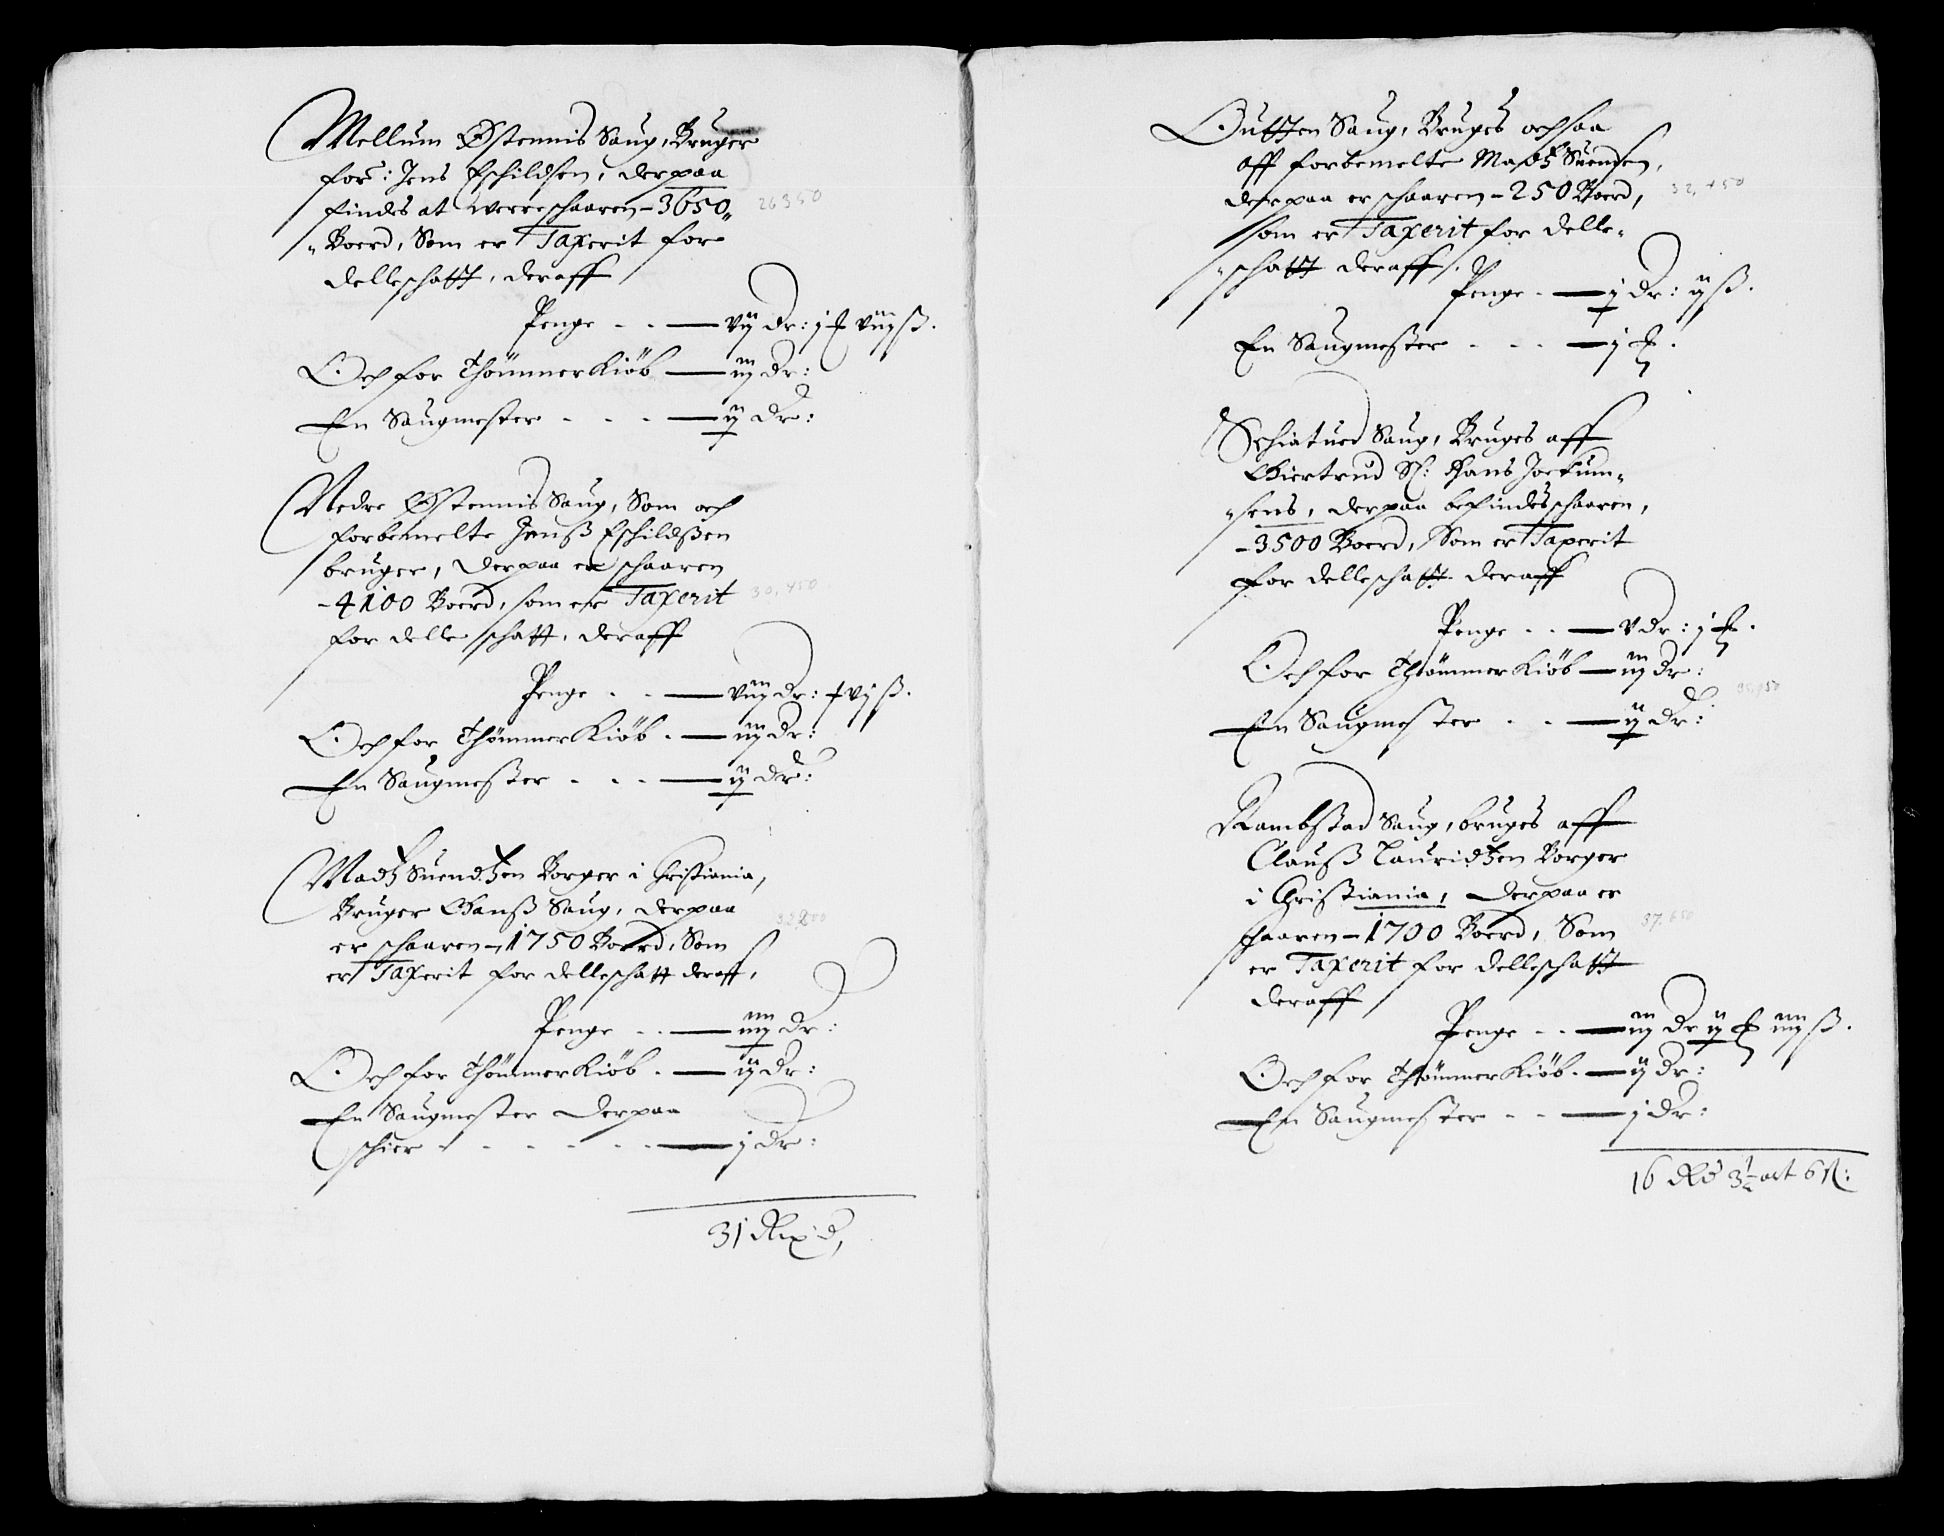 Mellum Østennis Saug, Bruger
for: Jens Eschildsen, derpaa
findes at werre schaaren - 3650
Boerd, Som er Taxerit for
delleschatt, deraff
Penge - - — vij dr: j ƒ viij ß.
Och for Thømmer Kiøb — iiij dr:
En Saugmester - - - — ij dr:
26350
Nedre Østennis Saug, Som och
forbemelte Jenß Eschildßen
bruger, derpaa er schaaren
- 4100 Boerd, som er Taxerit
for delle schatt, deraff
Penge - - — viij dr: ƒ vj ß.
Och for Thømmer Kiøb - — iiij dr:
En Saugmester - - - — ij dr:
30,450
Madtz Suendtzen Borger i Christiania,
Bruger Hanß Saug, derpaa
er schaaren - 1750 Boerd, Som
er Taxerit for delleschatt deraff,
Penge - - — iiij dr:
Och for Thømmer Kiøb - — ij dr:
En Saugmester derpaa
schier - - - - - — j dr:
31 Rix d,
Outten Saug, Bruges ochsaa
aff forbemelte Madtz Suendsen,
derpaa er schaaren - 250 Boerd,
som er Taxerit for delle-
schatt deraff.
Penge - — j dr: ij ß.
En Saugmester - - - — j ƒ.
32,450
Schiatued Saug, Bruges aff
Giertrud Sl: Hans Jockum-
sens, derpaa befindes schaaren,
- 3500 Boerd, Som er Taxerit
for delleschatt deraff
Penge - - — v dr: j ƒ.
Och for Thømmer Kiøb — iij dr:
En Saugmester - - — ij dr:
35,950
Rambstad Saug, bruges aff
Clauß Lauridtzen Borger
i Christiania, derpaa er
schaaren - 1700 Boerd, Som
er Taxerit for delleschatt
deraff
Penge - - — iij dr ij ƒ iiij ß.
Och for Thømmer Kiøb - — ij dr:
En Saugmester - - — j dr:
37,650
16 Rd 3½ ort 6 ß: